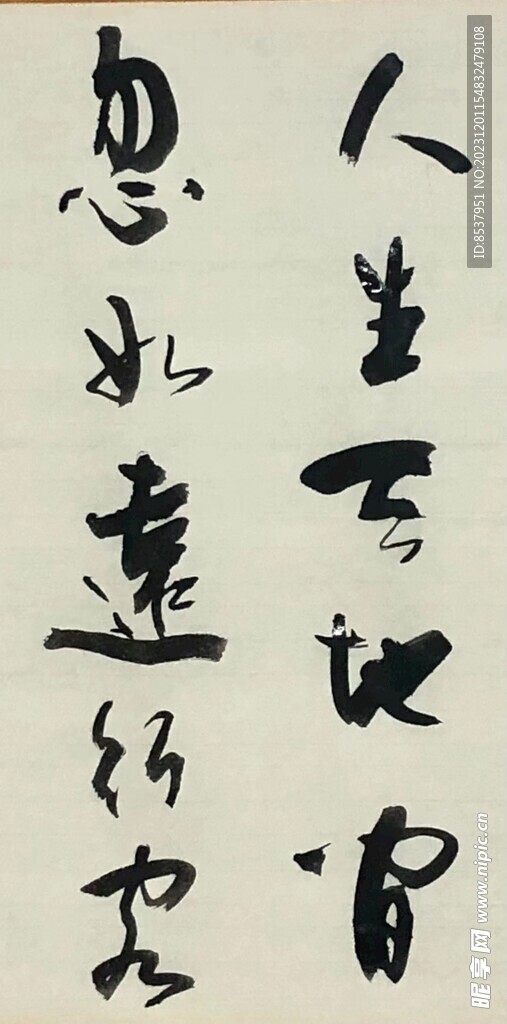 人生天地間
忽如遠行客
ID:8537951 NO:20231201154832479108
昵享网 www.nipic.cn